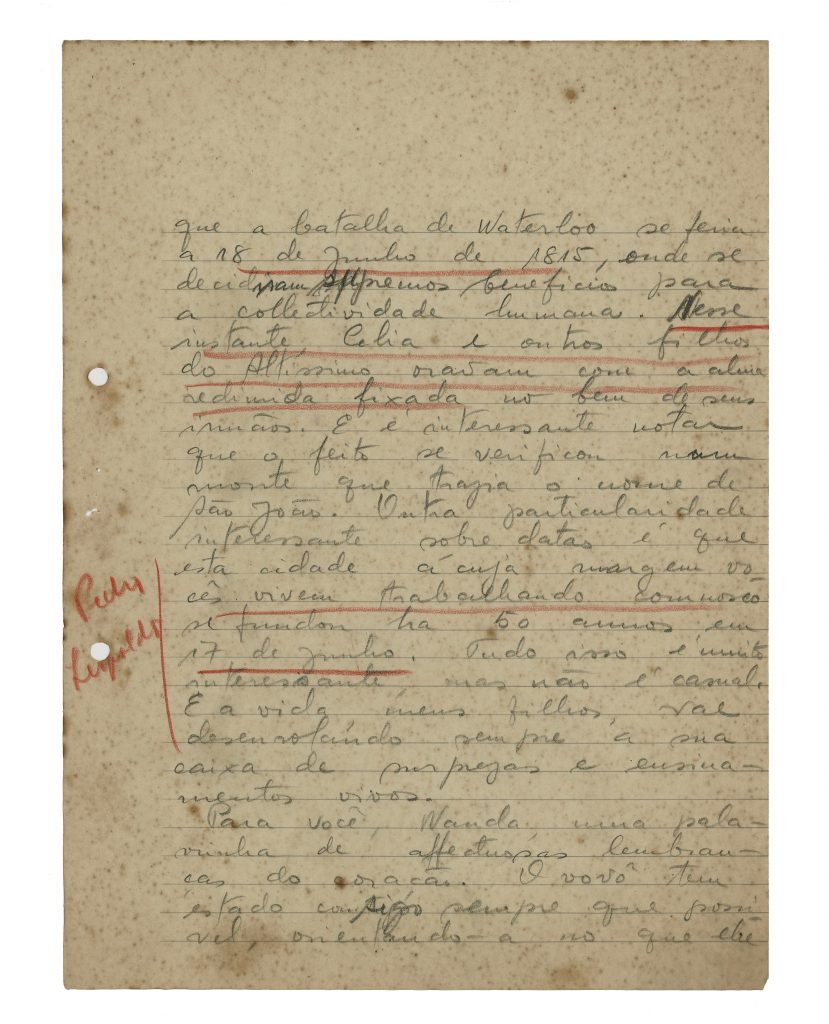 que a batalha de Waterloo se feria
a 18 de Junho de 1815, onde se
decidiram supremos beneficios para
a collectividade humana. Nesse
instante, Celia e outros filhos
do Altissimo oravam com a alma
redimida fixada no bem de seus
irmãos. E é interessante notar
que o feito se verificou num
monte que trazia o nome de
São João. Outra particularidade
interessante sobre datas é que
esta cidade á cuja margem vo
cês vivem trabalhando comnosco
se fundou ha 50 annos em
17 de Junho. Tudo isso é muito
interessante, mas não é casual.
E a vida, meus filhos, vae
desenrolando sempre a sua
caixa de surprezas e ensina-
mentos vivos.
Para você, Wanda, uma pala-
vrinha de affectuosas lembran-
ças do coração. O vovô tem
estado comsigo sempre que possi
vel, orientando-a no que
Pedro
Leopoldo